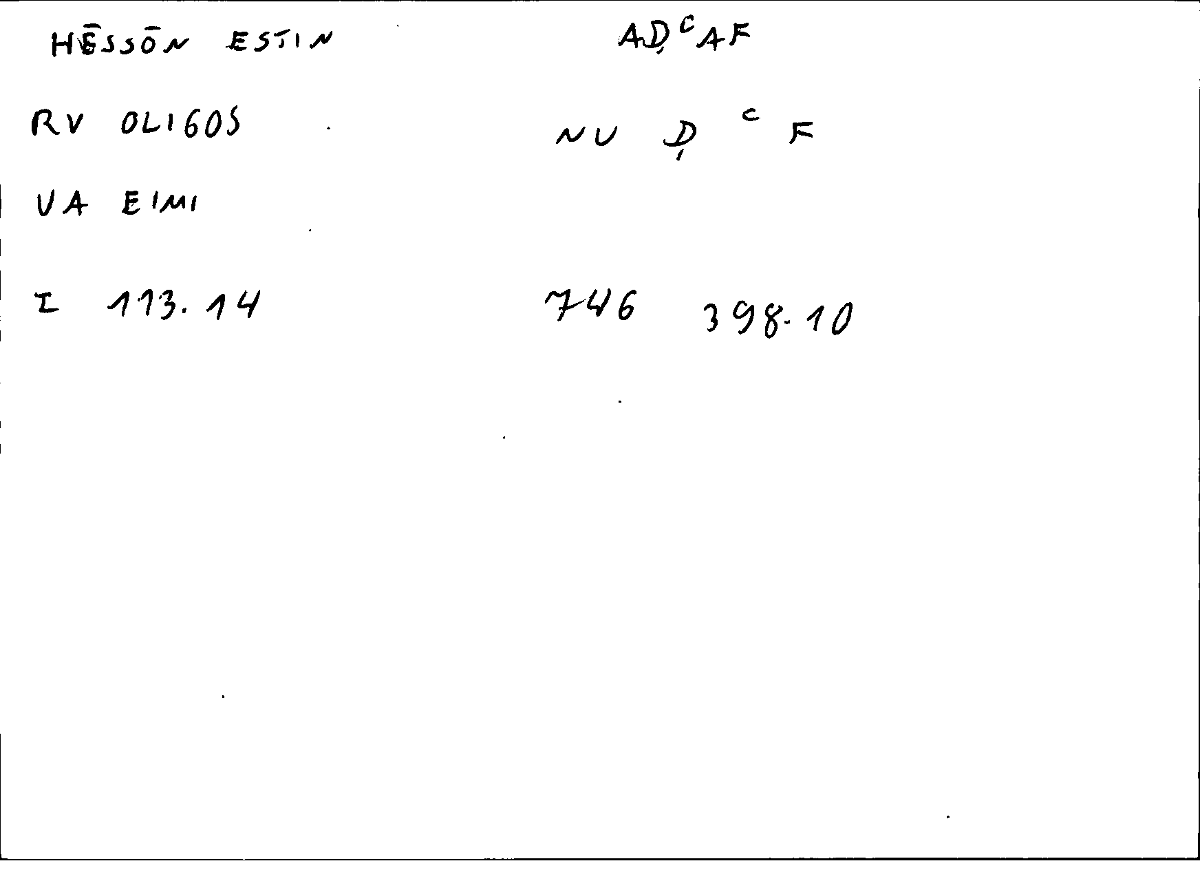 HĒSSŌN ESTIN AḌᶜAF
RV OLIGOS NU Ḍ ᶜ F
VA EIMI
I 113.14 746 398.10